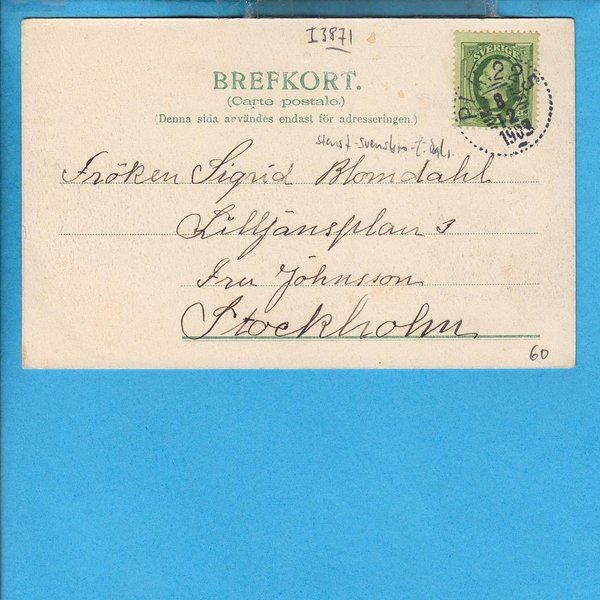 I3871
BREFKORT.
(Carte postale.)
(Denna sida användes endast för adresseringen.)
SVERIGE
8
12
1903
Fröken Sigrid Blomdahl
Lilljansplan 3
Fru Johnsson
Stockholm
60